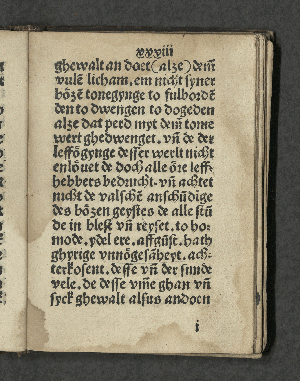 xxviii
ghewalt an doet (alze) dem̄
vulē licham, em nicht syner
bözē tonegynge to fulbordē
den to dwengen to dogeden
alze dat perd myt dem̄ tome
wert ghedwenget. vn̄ de der
leffögynge desser werlt nicht
enlöuet de doch alle öre leff-
hebbers bedrucht. vn̄ achtet
nicht de valschē anschūdige
des bözen geystes de alle stū
de in blest vn̄ reyset. to ho-
mode. ydel ere. affgūst. hath
ghyrige vnnögesāheyt. ach-
terkosent. desse vn̄ der sunde
vele. de desse vm̄e ghan vn̄
syck ghewalt alsus andoen
i